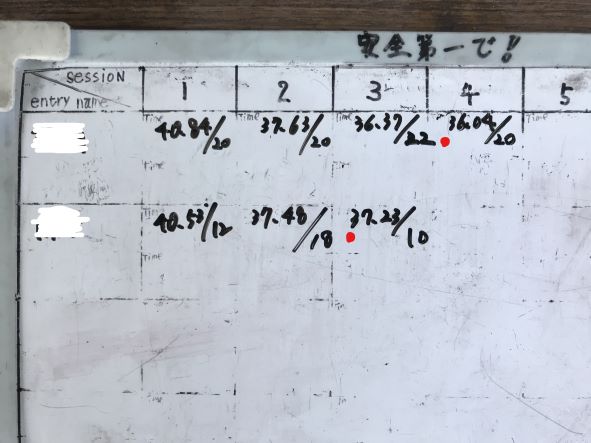 安全第一で!!
SESSION
entry name
1 2 3 4 5
Time Time Time Time Time
40.84/20 37.63/20 36.37/22 36.04/20
40.53/12 37.48/18 37.23/10
Time Time